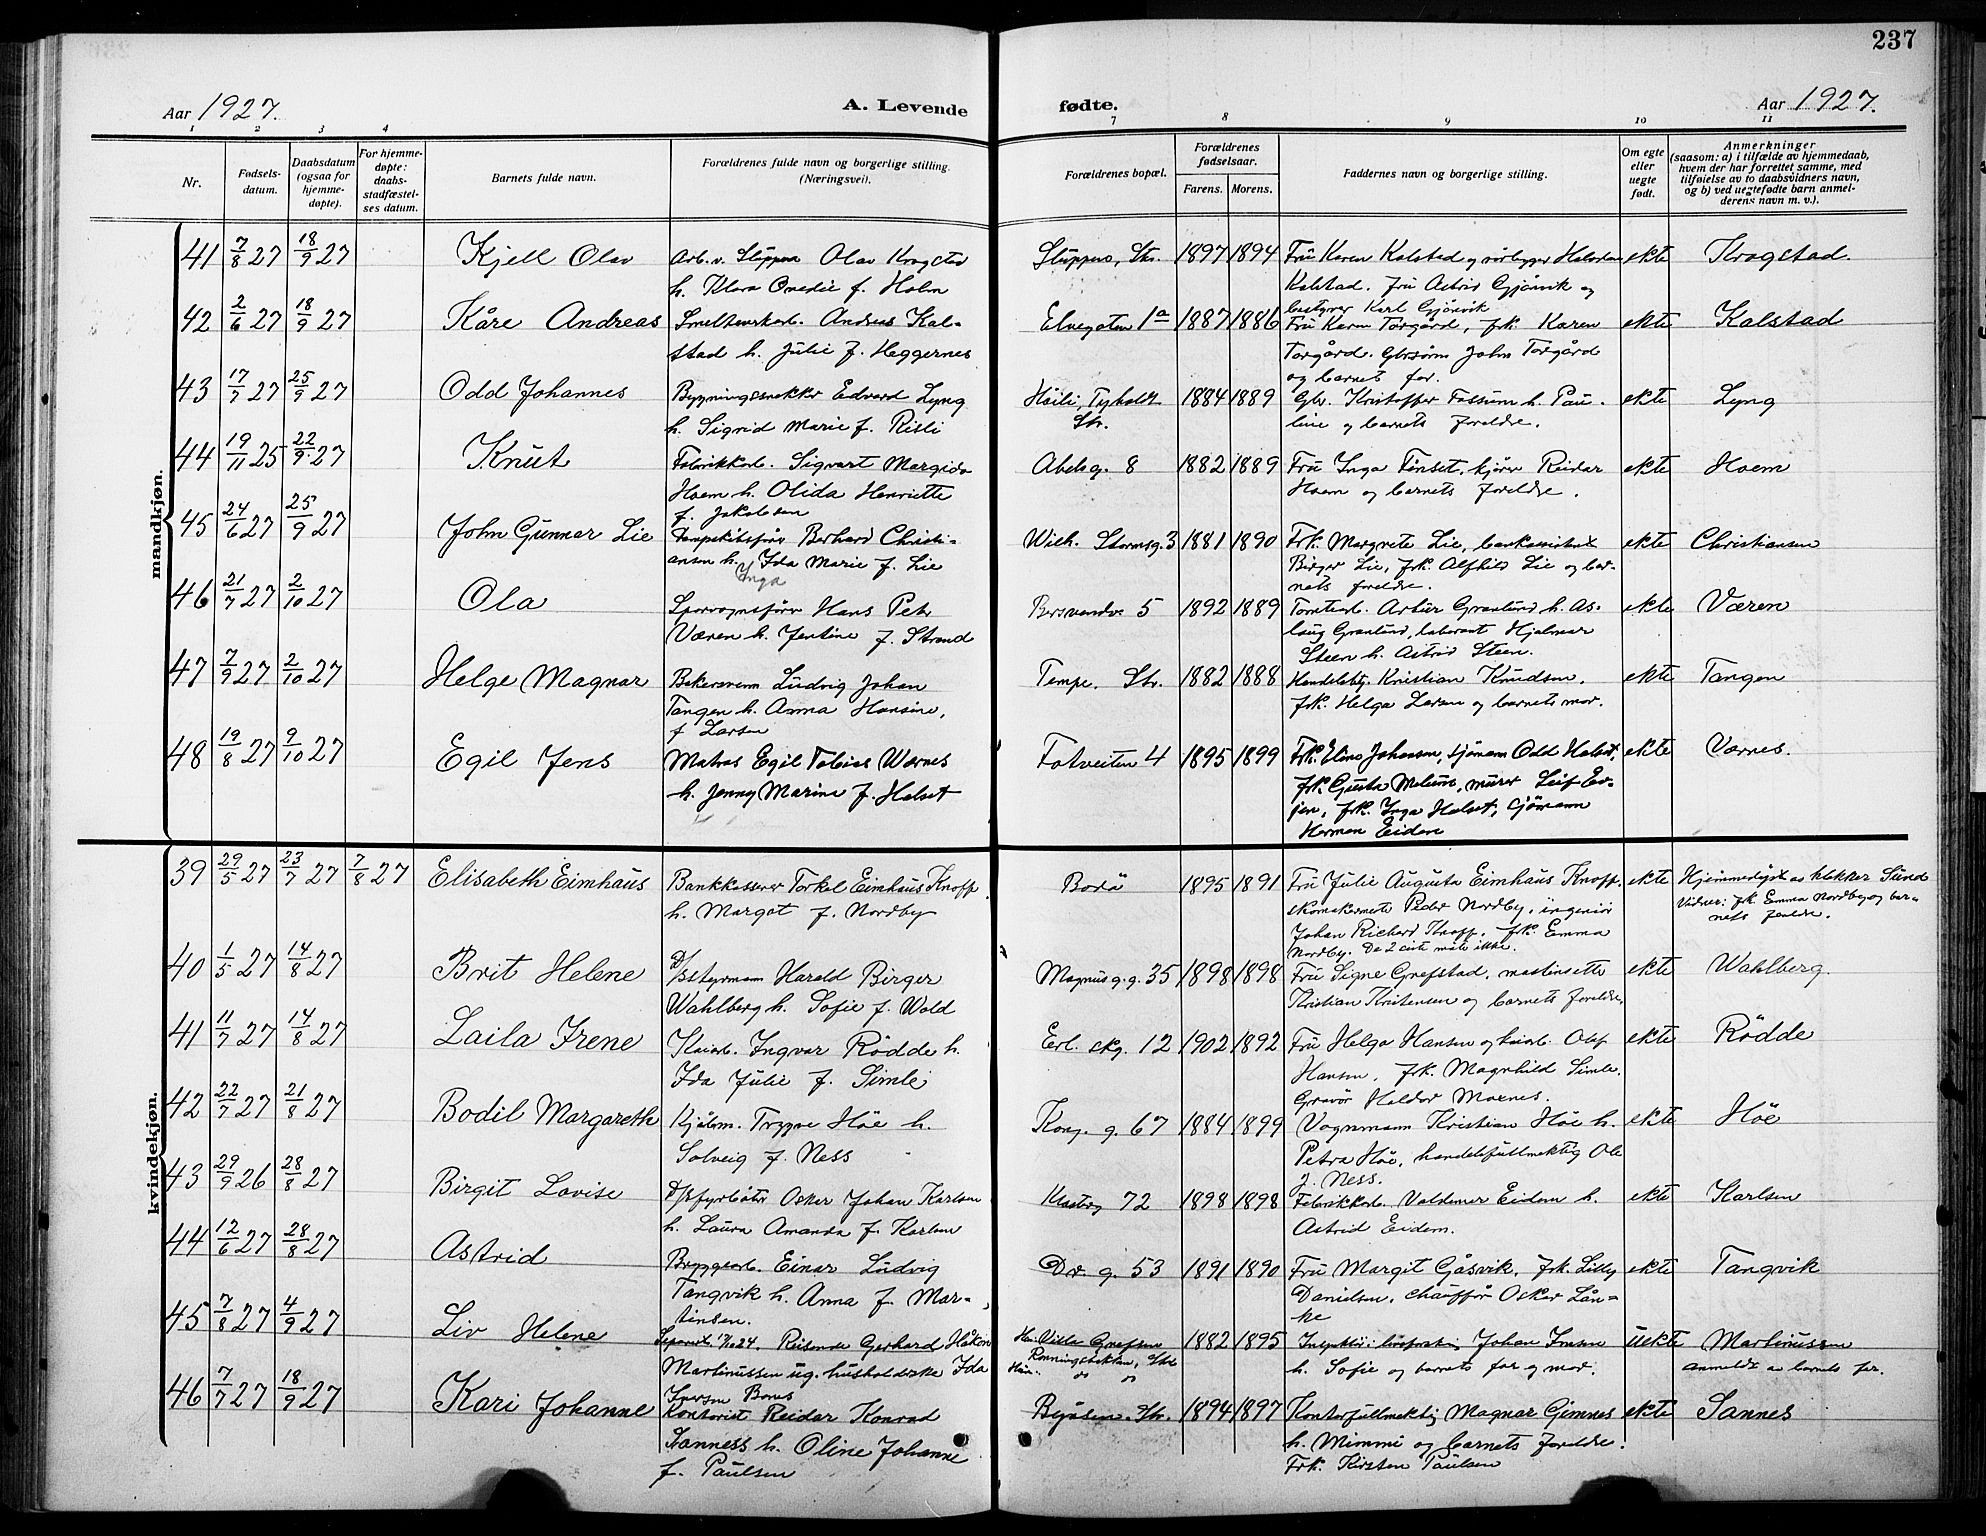 237
Aar 1927.
A. Levende fødte.
Aar 1927.
1 2 3 4 7 8 9 10 11
Nr.
Fødsels-
datum.
Daabsdatum
(ogsaa for
hjemme-
døpte).
For hjemme-
døpte:
daabs-
stadfæstel-
ses datum.
Barnets fulde navn.
Forældrenes fulde navn og borgerlige stilling.
(Næringsvei).
Forældrenes bopæl.
Forældrenes
fødselsaar.
Farens. Morens.
Faddernes navn og borgerlige stilling.
Om egte
eller
uegte
født.
Anmerkninger
(saasom: a) i tilfælde av hjemmedaab,
hvem der har forrettet samme, med
tilføielse av to daabsvidners navn,
og b) ved uegtefødte barn anmel-
derens navn m. v.).
mandkjøn.
41 7/8 27 18/9 27 Kjell Olav
Arb. v. Sluppen Olav Krogstad
h. Klara Ovedie f. Holm
Sluppen, Str. 1897 1894
Fru Karen Kalstad og rørlegger Halvdan
Kalstad. Fru Astrid Gjørvik og
bestyrer Karl Gjørvik
ekte Krogstad.
42 2/6 27 18/9 27 Kåre Andreas
Smelteverkarb. Andreas Kal-
stad h. Julie f. Heggernes
Elvegaten 1a 1887 1886
Fru Karen Torgård, frk. Karen
Torgård. Gbr.sønn John Torgård
og barnets far.
ekte Kalstad
43 17/7 27 25/9 27 Odd Johannes
Bygningssnekker Edvard Lyng
h. Sigrid Marie f. Risli
Høili, Tyholdt
Str. 1884 1889
Gbr. Kristoffer Fossum h. Pau-
line og barnets foreldre.
ekte Lyng
44 19/11 25 22/9 27 Knut
Fabrikkarb. Sigvart Margido
Hoem h. Olida Henriette
f. Jakobsen
Abelsg. 8 1882 1889
Fru Inga Finset, kjører Reidar
Hoem og barnets foreldre.
ekte Hoem
45 24/6 27 25/9 27 John Gunnar Lie
Dampskibsfører Berhard Christi-
ansen h. Ida Marie f. Lie
Inga
Wilh. Stormsg. 3 1881 1890
Frk. Margrete Lie, bankassistent
Birger Lie, frk. Alfhild Lie og bar-
nets foreldre.
ekte Christiansen
46 21/7 27 2/10 27 Ola
Sporvognsfører Hans Petr
Væren h. Jentine f. Strand
Bersvendv. 5 1892 1889
Tomtearb. Artur Granlund h. As-
laug Granlund, laborant Hjalmar
Steen h. Astrid Steen.
ekte Væren
47 7/9 27 2/10 27 Helge Magnar
Bakersvenn Ludvig Johan
Tangen h. Anna Hansine,
f Larsen
Tempe. Str. 1882 1888
Handelsbtj. Kristian Knudsen.
frk. Helga Larsen og barnets mor.
ekte Tangen
48 19/8 27 9/10 27 Egil Jens
Matros Egil Tobias Wærnes
h. Jenny Marine f. Halset
Totveiten 4 1895 1899
Frk. Eline Johansen, sjømann Odd Halset,
frk. Gusta Melum, murer Leif Ev-
jen, frk. Inga Halset, sjømann
Herman Eidem
ekte Værnes.
kvindekjøn.
39 29/5 27 23/7 27 7/8 27 Elisabeth Eimhaus
Bankkasserer Torkel Eimhaus Knoff
h. Margot f. Nordby
Bodø 1895 1891
Fru Julie Augusta Eimhaus Knoff.
skomakermester Peder Nordby, ingeniør
Johan Richard Knoff. frk. Emma
Nordby. De 2 siste møtte ikke.
ekte Hjemmedøpt av klokker Sund
Vidner: frk Emma Nordby og bar-
nets foreldre.
40 1/5 27 14/8 27 Brit Helene
D/S styrmann Harald Birger
Wahlberg h. Sofie f. Wold
Magnus g. g. 35 1898 1898
Fru Signe Grefstad, maskinsette
Kristian Kristensen og barnets foreldre,
ekte Wahlberg.
41 11/7 27 14/8 27 Laila Irene
Kaiarb. Ingvar Rödde h.
Ida Julie f. Simle
Erl. skg. 12 1902 1892
Fru Helga Hansen og kaiarb. Olaf
Hansen, frk. Magnhild Simle.
Gravør Haldor Moenes.
ekte Rödde
42 22/7 27 21/8 27 Bodil Margareth
Kjølm. Trygve Höe h.
Solveig f. Ness
Kong. g. 67 1884 1899
Vognmann Kristian Höe h.
Petra Höe, handelsfullmektig Ole
J. Ness.
ekte Höe
43 29/9 26 28/8 27 Birgit Lovise
D/S fyrbøter Oskar Johan Karlsen
h. Laura Amanda f. Karlsen
72 1898 1898
Fabrikkarb. Valdemar Eidem h.
Astrid Eidem.
ekte Karlsen
44 12/6 27 28/8 27 Astrid
Bryggearb. Einar Ludvig
Tangvik h. Anna f. Mar-
tinsen.
Dr. g. 53 1891 1890
Fru Margit Gåsvik, frk. Lilly
Danielsen, chauffør Oskar Lån-
ke
ekte Tangvik
45 7/8 27 4/9 27 Liv Helene
Separert 1/10 24. Reisende Gerhard Håkon
Martinussen ug. husholderske Ida
Iversen Borus
Han: Villa Grefsen
Ronningsbakken, Str.
Hun: " " 1882 1895
Inspektør Johan Jensen
h. Sofie og barnets far og mor.
uekte Martinussen
anmeldt av barnets far.
46 7/7 27 18/9 27 Kari Johanne
Kontorist Reidar Konrad
Sanness h. Oline Johanne
f. Paulsen
Byåsen. Str. 1894 1897
Kontorfullmektig Magnar Gimnes
h. Mimmi og barnets foreldre.
Frk. Kirsten Paulsen
ekte Sannes